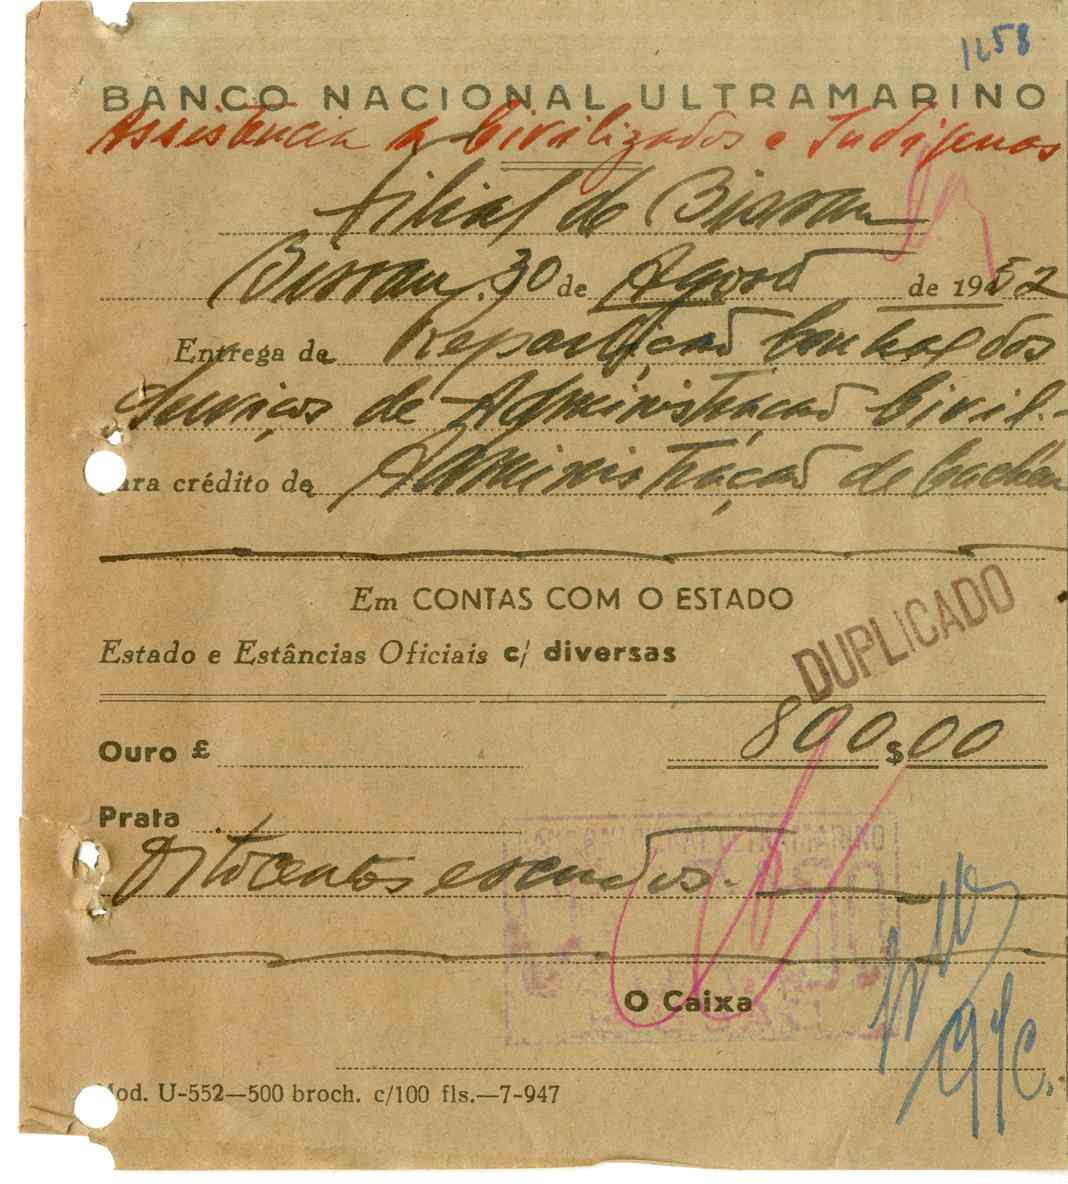 1258
BANCO NACIONAL ULTRAMARINO
Assistência a Civilizados e Indígenas
Filial de Bissau
Bissau, 30 de Agosto de 1952
Entrega de Repartição Central dos
Serviços de Administração Civil.-
para crédito de Administração de Cacheu
Em CONTAS COM O ESTADO
Estado e Estâncias Oficiais c/ diversas
DUPLICADO
Ouro £ 800$00
Prata
Oitocentos escudos.-
BANCO NACIONAL ULTRAMARINO
O Caixa
Mod. U-552—500 broch. c/100 fls.—7-947